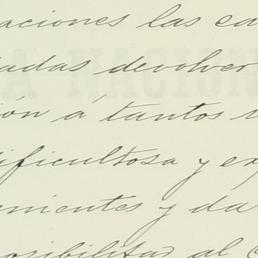 aciones las ca
adas devolver
ión á tantos
ificultosa y ex
enientes y da
osibilitar al